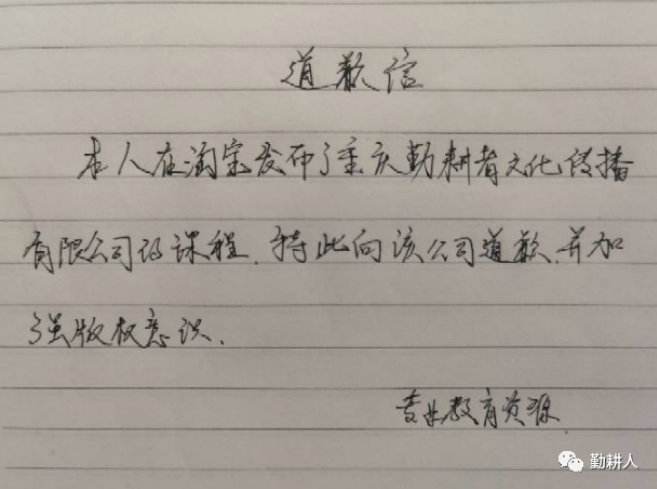 道歉信
本人在淘宝发布了重庆勤耕者文化传播
有限公司的课程,特此向该公司道歉,并加
强版权意识.
专业教育资源
勤耕人